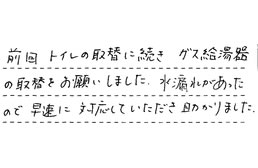 前回 トイレの取替に続き ガス給湯器
の取替をお願いしました. 水漏れがあった
ので 早速に 対応していただき 助かりました.